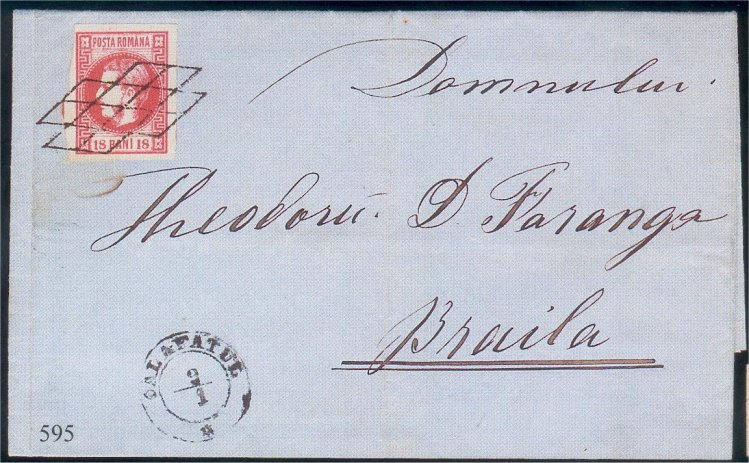 POSTA ROMÂNA
18 BANI 18
Domnului
Theodoru D Faranga
Braila
CALAFATUL
2/1
595